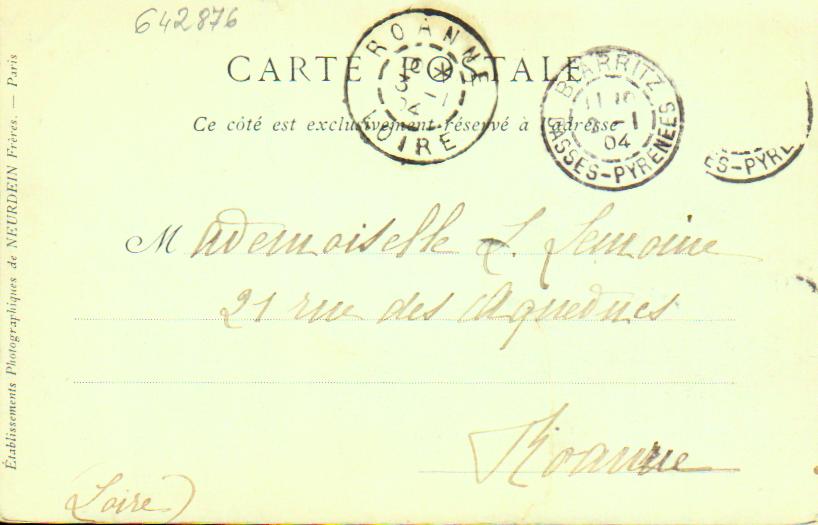 642876
CARTE POSTALE
ROANNE
LOIRE
04
BIARRITZ
-1
04
BASSES-PYRENEES
ES-PYRE
Ce côté est exclusivement réservé à l'adresse
Mademoiselle L. Lemoine
21 rue des Aqueducs
Roanne
(Loire)
Établissements Photographiques de NEURDEIN Frères. — Paris